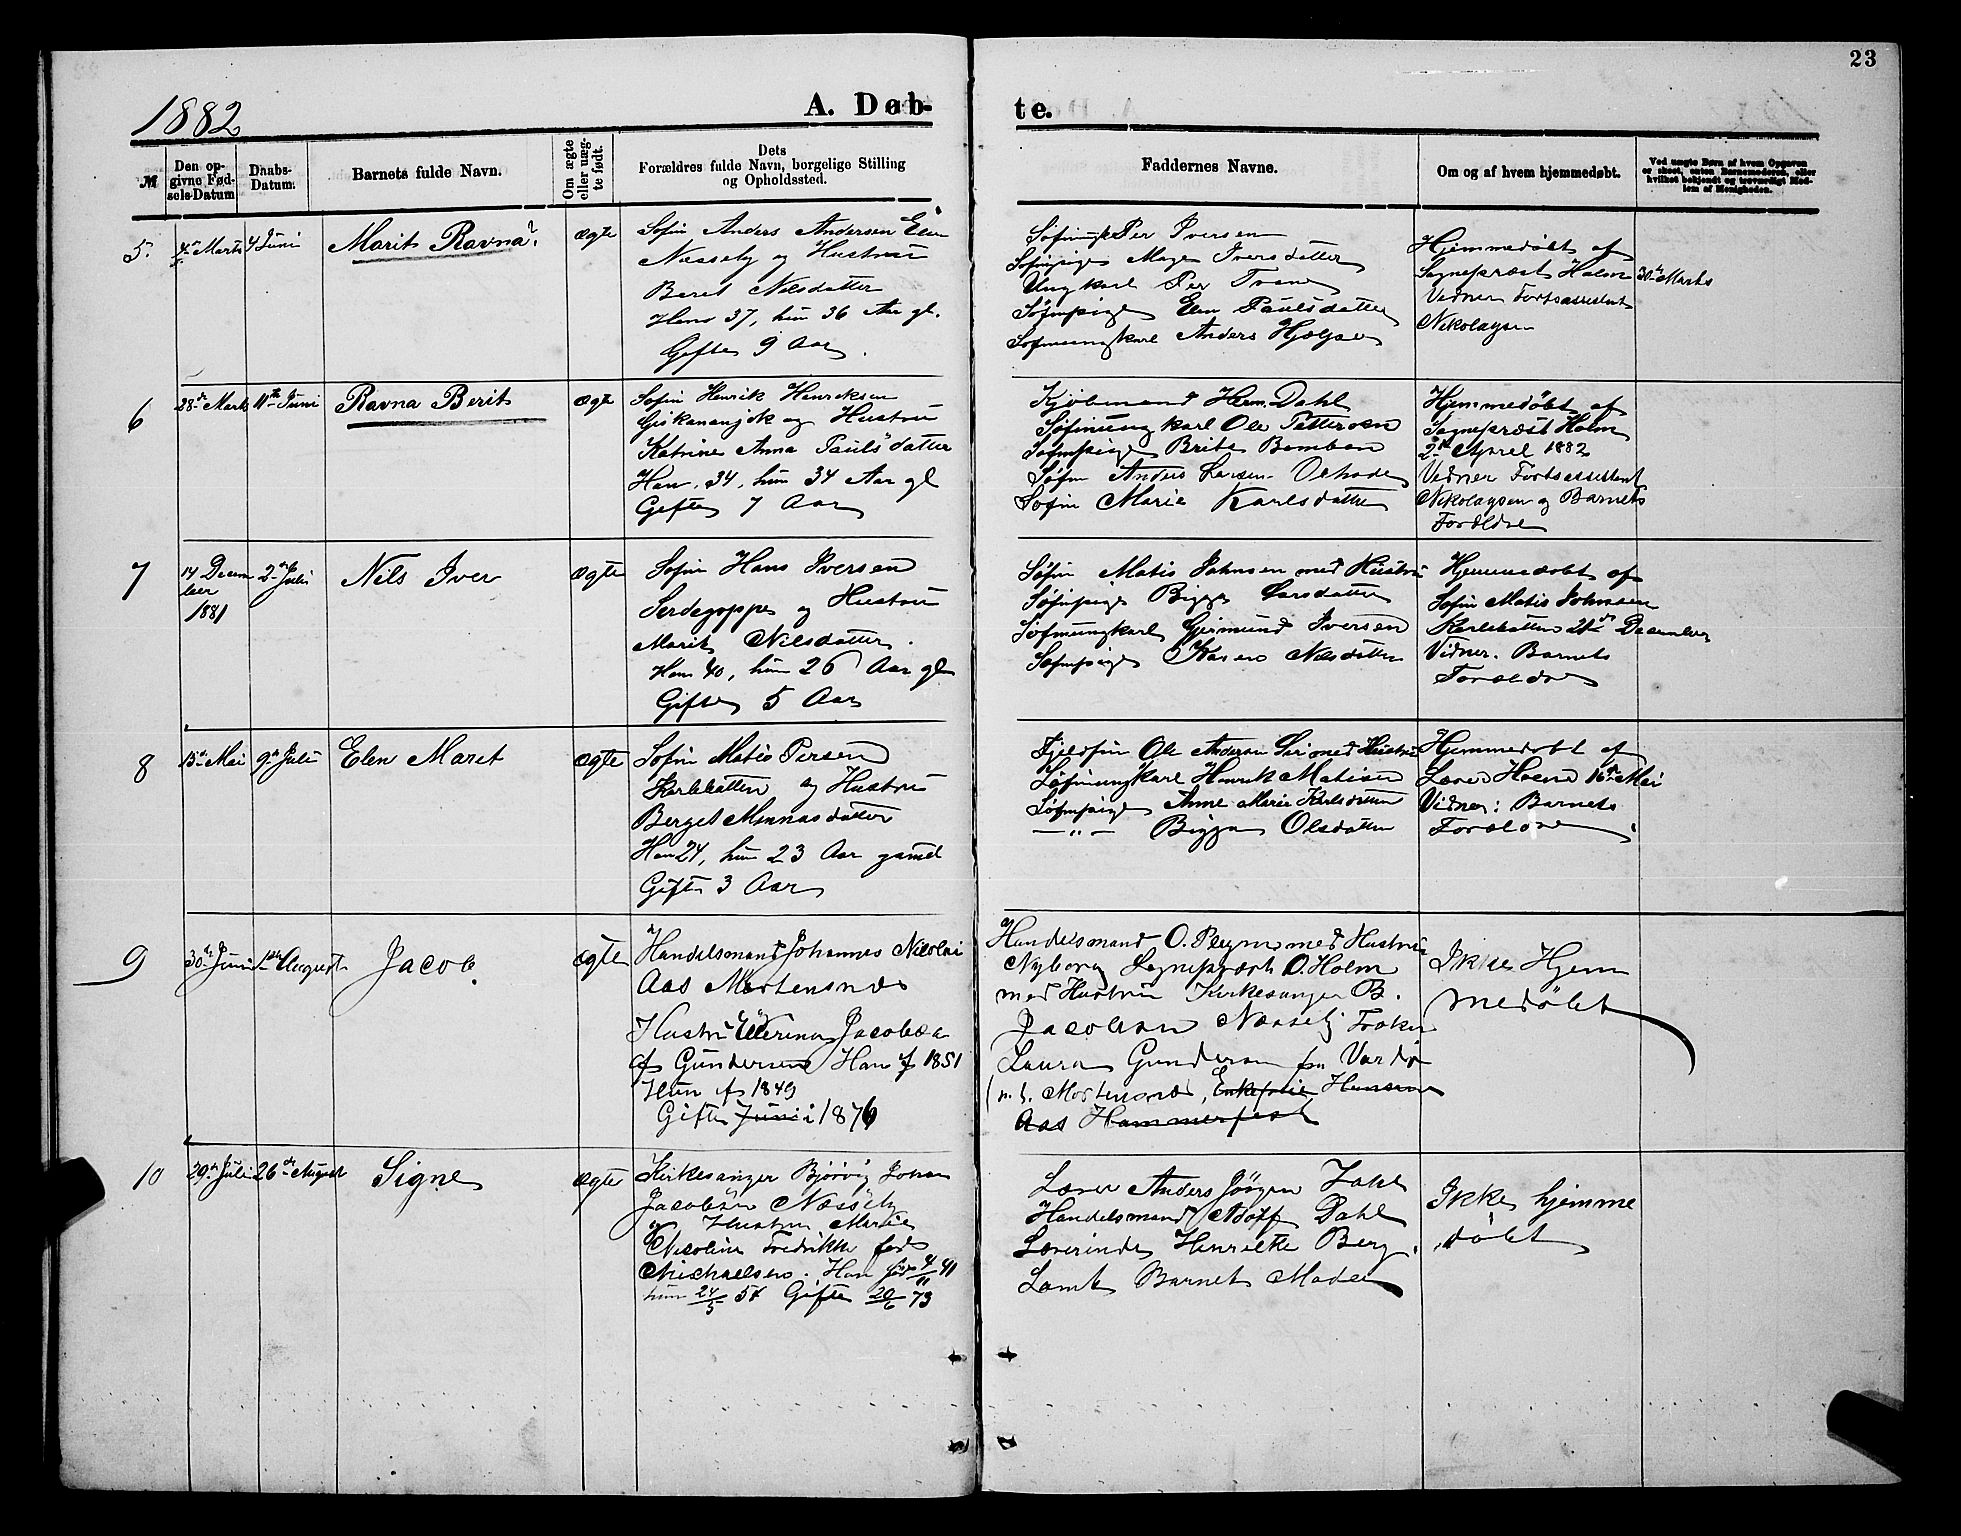 23
1882
A. Døb-
te.
№
Den op-
givne Fød-
sels-Datum
Daabs-
Datum.
Barnets fulde Navn.
Om ægte
eller uæg-
te født.
Dets
Forældres fulde Navn, borgelige Stilling
og Opholdssted.
Faddernes Navne.
Om og af hvem hjemmedøbt.
Ved uægte Børn af hvem Opgaven
er skeet, enten Barnemoderen, eller
hvilket bekjendt og troværdigt Med-
lem af Menigheden.
5.
Marts
4 Juni
Marit Ravna
ægte
Søfin Anders Andersen
Næsseby og Hustru
Beret Nilsdatter
Han 37, hun 36 Aar gl.
Gifte 9 Aar.
Per Iversen
Søfinpige Iversdatter
Ungkarl Per
Søfinpige Elen Paulsdatter
Søfinungkarl Anders
Hjemmedøbt af
Sogneprest Holm 30te Marts
Vidner Fortsassistent
Nikolaysen
6
28de Marts
11te Juni
Ravna Berit
ægte
Søfin Henrik Henriksen
og Hustru
Katrine Anna Paulsdatter
Han 34, hun 34 Aar gl
Gifte 7 Aar
Kjøbmand Herm. Dahl
Søfinungkarl Ole Pettersen
Søfinpige Brita
Søfin Anders Larsen
Søfin Marie Karlsdatter
Hjemmedøbt af
Sognepræst Holm
2den April 1882
Vidner Fortsassistent
Nikolaysen og Barnets
Forældre
7
14 Decem
ber
1881
2den Juli
Nils Iver
ægte
Søfin Hans Iversen
og Hustru
Marit Nilsdatter.
Han 40, hun 26 Aar gl
Gifte 5 Aar
Søfin Matis Johnsen med Hustru
Søfinpige Bigga Larsdatter
Søfinungkarl Germund Iversen
Søfinpige Karen Nilsdatter
Hjemmedøbt af
Søfin Matis Johnsen
Karlebotten 21de December
Vidner. Barnets
Forældre
8
15de Mai
9de Juli
Elen Maret
ægte
Søfin Matis Persen
Karlebotten og Hustru
Berget Monnasdatter
Han 24, hun 23 Aar gamel
Gifte 3 Aar
Fjeldfin Ole Andersen Siri med Hustru
Søfinungkarl Henrik Matisen
Søfinpige Anne Marie Karlsdatter
— " — Bigga Olsdatter
Hjemmedøbt af
Lærer 16de Mai
Vidner: Barnets
Forældre
9
30te Juni
1ste August
Jacob.
ægte
Handelsmand Johannes Nicolai
Aas Mortensnæs
Hustru Jacobæa
f Gundersen Han f 1851
Hun f 1849
Gifte Juni 1876
Handelsmand O. Pleym med Hustru
Nyborg Sognepræst O. Holm
med Hustru Kirkesanger B.
Jacobsen Næsseby Frøken
Laura Gundersen fra Vardø
(n. t. Mortensnæs, Enkefrue Hansine
Aas Hammerfest
Ikke Hjem
medøbt
10
29de Juli
26de August
Signe
ægte
Kirkesanger Bjørvig Johan
Jacobsen Næsseby
og Hustru Marie
Nicoline Fredrikke født
Michaelsen. Han født 4/11 41
hun 24/5 54 Gifte 20/6 73
Lærer Anders Jörgen Dahl
Handelsmand Adolf Dahl
Lærerinde Henriette Berg.
Samt Barnets Moder
Ikke hjemme
døbt